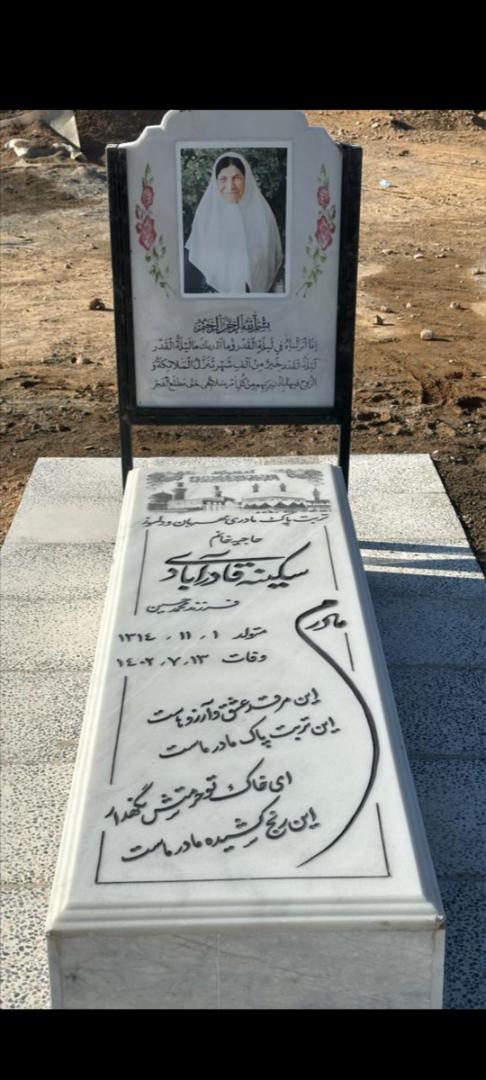 بسم الله الرحمن الرحیم
انا انزلناه فی لیلة القدر وما ادریك ما لیلة القدر
لیلة القدر خیر من الف شهر تنزل الملائکة و
الروح فیها باذن ربهم من کل امر سلام هی حتی مطلع الفجر
تربت پاک مادری مهربان و دلسوز
حاجیه خانم
سکینه قادرآبادی
فرزند محمدحسین
متولد ۱ ، ۱۱ ، ۱۳۱۴
وفات ۱۳ ، ۷ ، ۱۴۰۲
مادرم
این مرقد عشق و آرزوهاست
این تربت پاک مادر ماست
ای خاک تو حرمتش نگهدار
این رنج کشیده مادر ماست